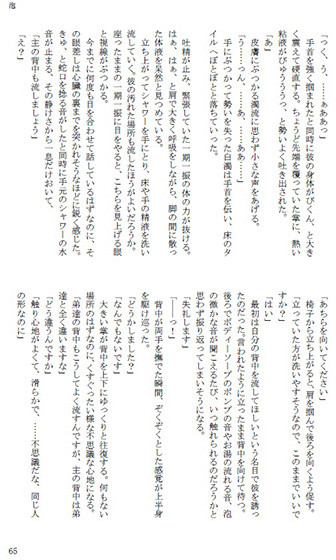 「っく、う、……ぁああ」
手首を強く掴まれたと同時に彼の身体がびくん、と大き
く震えて硬直する。ちょうど先端を覆っていた掌に、熱い
粘液がびゅうううっ、と勢いよく吐き出された。
「あ」
皮膚にぶつかる濁流に思わず小さな声をあげる。
「う……っん、……あ、……ああっ……」
手にぶつかって勢いを失った白濁は手首を伝い、床のタ
イルへぽとぽとと落ちていった。
吐精が止み、緊張していた一期一振の体の力が抜ける。
はぁ、はぁ、と肩で大きく呼吸をしながら、脚の間に散っ
た体液を呆然と見つめている。
立ち上がってシャワーを手にとり、床や手の精液を洗い
流していく。彼の汚れた場所も流したほうがよいだろうか。
座ったままの一期一振に目をやると、こちらを見上げる眼
と視線がぶつかる。
今までに何度も目を合わせて話しているはずなのに、そ
の眼差しは心臓の裏までを突かれそうなほどに鋭く感じた。
きゅ、と蛇口を捻る音がしたと同時に手元のシャワーの水
音が止まる。その静けさから一息だけおいて、
「主の背中も流しましょう」
「え？」
「あちらを向いてください」
椅子から立ち上がると、肩を掴んで後ろを向くよう促す。
「立っていた方が洗いやすそうなので、このままでいいで
すか？」
「はい」
最初は自分の背中を流してほしいという名目で彼を誘っ
たのだった。言われたように立ったまま背中を向けて待つ。
後ろでボディーソープのポンプの音やお湯の流れる音、泡
の微かな音が聞こえるたび、いつ触れられるのだろうかと
思わず振り返ってしまいそうになる。
「失礼します」
「――っ！」
背中が両手を撫でた瞬間、ぞくぞくとした感覚が上半身
を駆け巡った。
「どうかしました？」
「なんでもないです」
大きい掌が背中を上下にゆっくりと往復する。何もない
場所のはずなのに、くすぐったい様な不思議な心地になる。
「弟達の背中もこうしてよく流すんですが、主の背中は弟
達と全く違いますな」
「どう違うんですか」
「触り心地がよくて、滑らかで、……不思議だな、同じ人
の形なのに」
泡
65